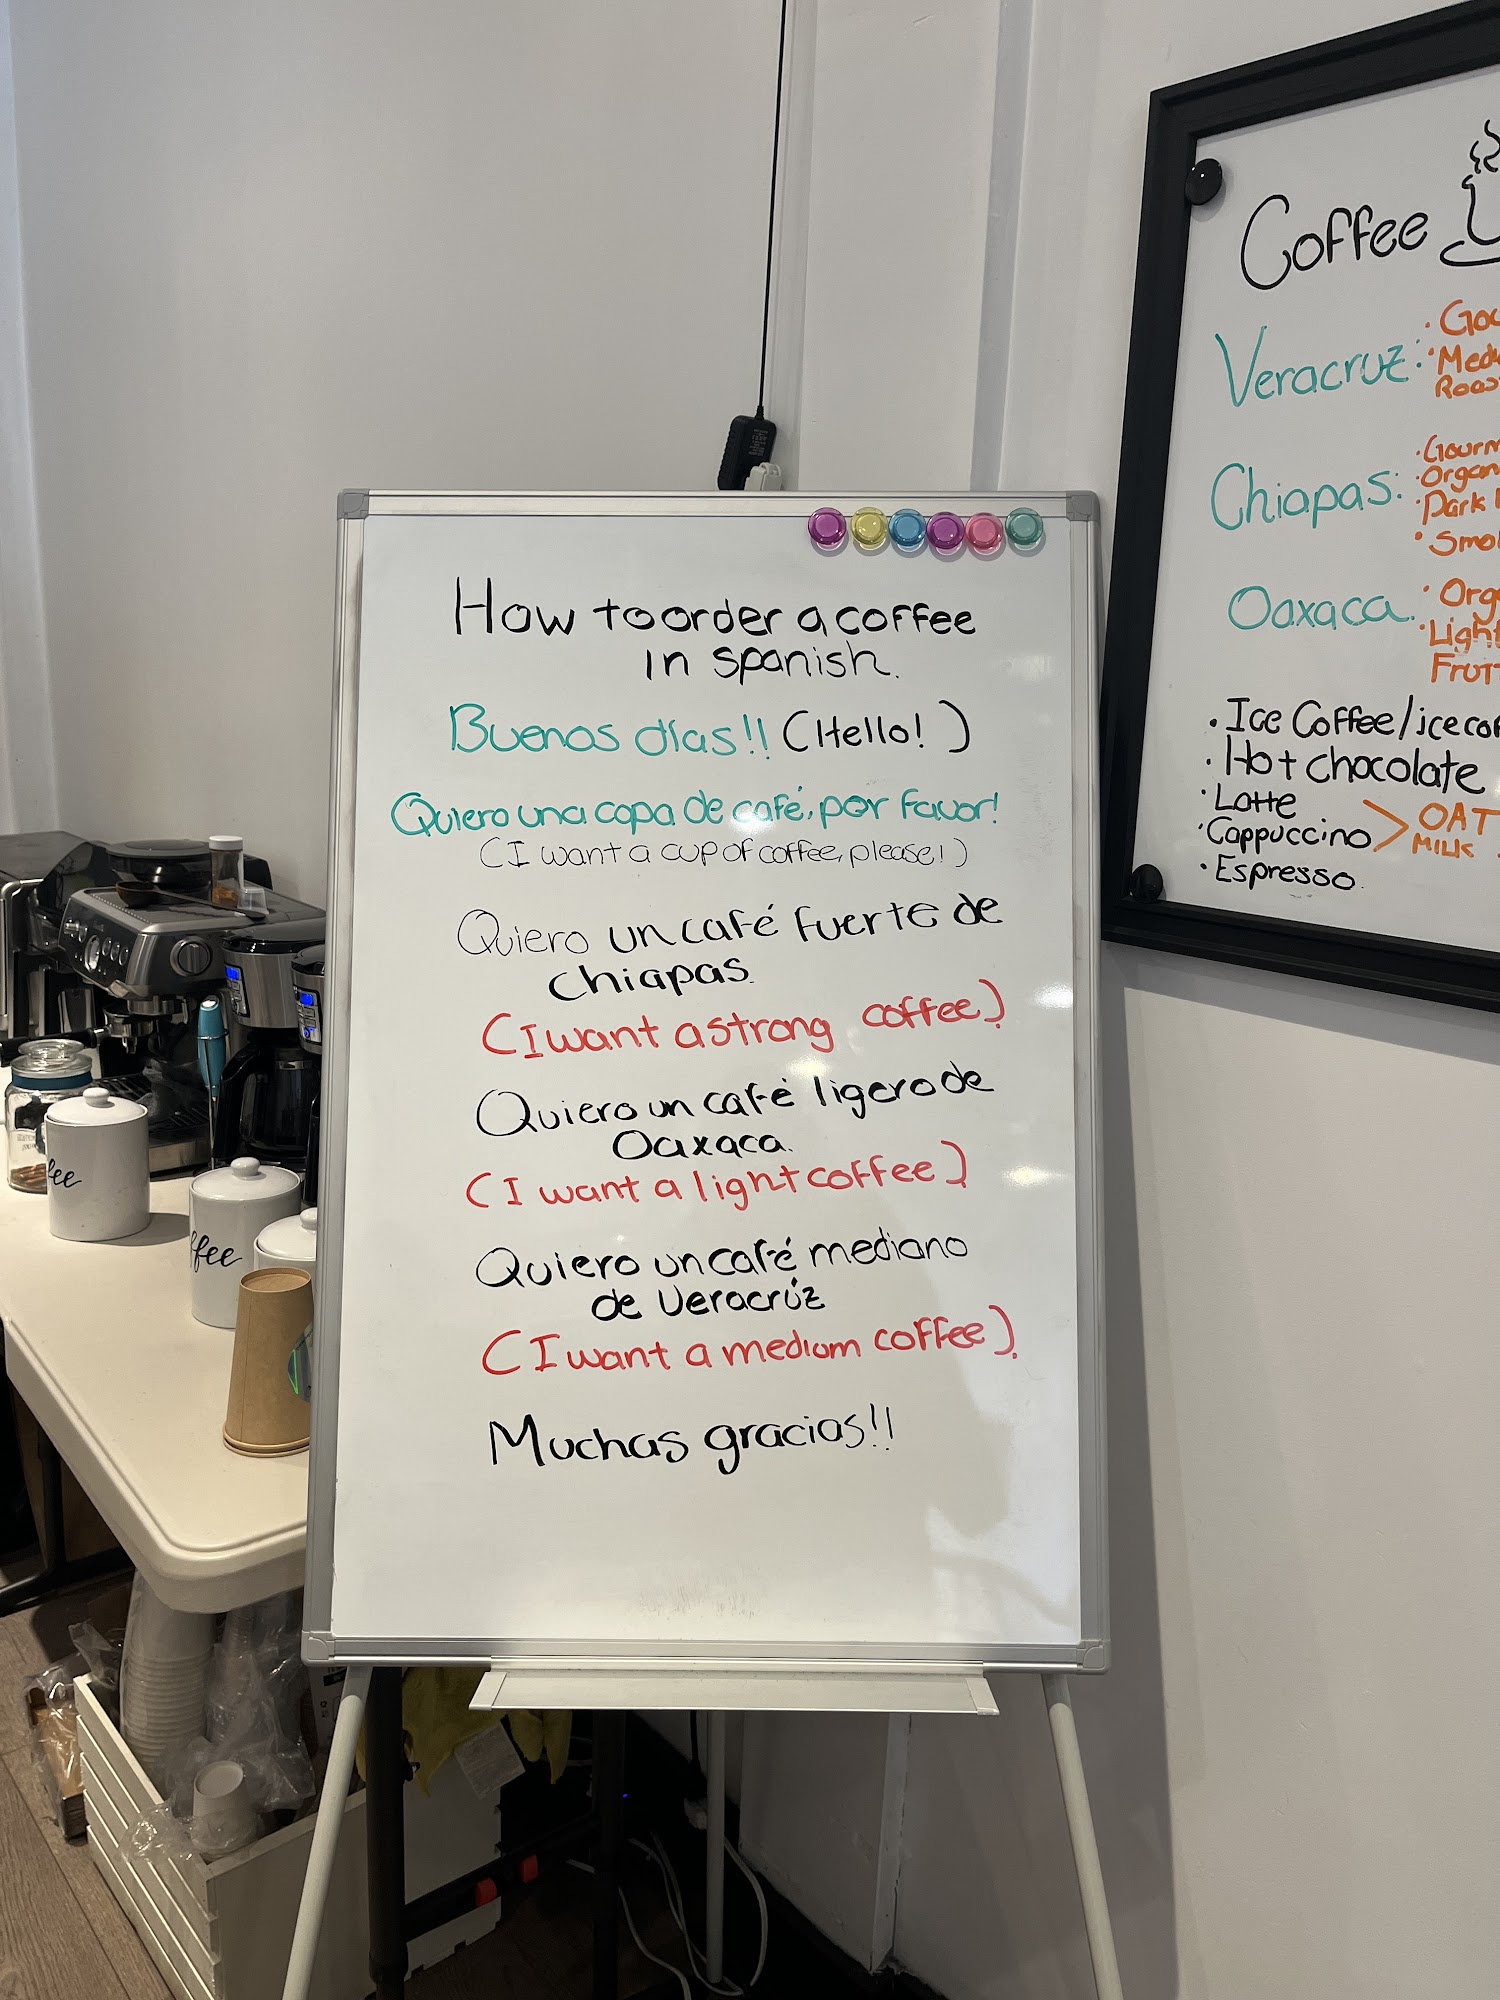 How to order a coffee
in spanish.
Buenos días!! (Hello! )
Quiero una copa de café, por favor!
(I want a cup of coffee, please!)
Quiero un café fuerte de
chiapas.
(I want a strong coffee).
Quiero un café ligero de
Oaxaca.
(I want a light coffee).
Quiero un café mediano
de Veracrúz
(I want a medium coffee).
Muchas gracias!!
Coffee
Veracruz:
Chiapas:
Dark
Oaxaca.
Light
• Ice Coffee/
• Hot chocolate
• Latte
• Cappuccino > OAT
MILK
• Espresso.